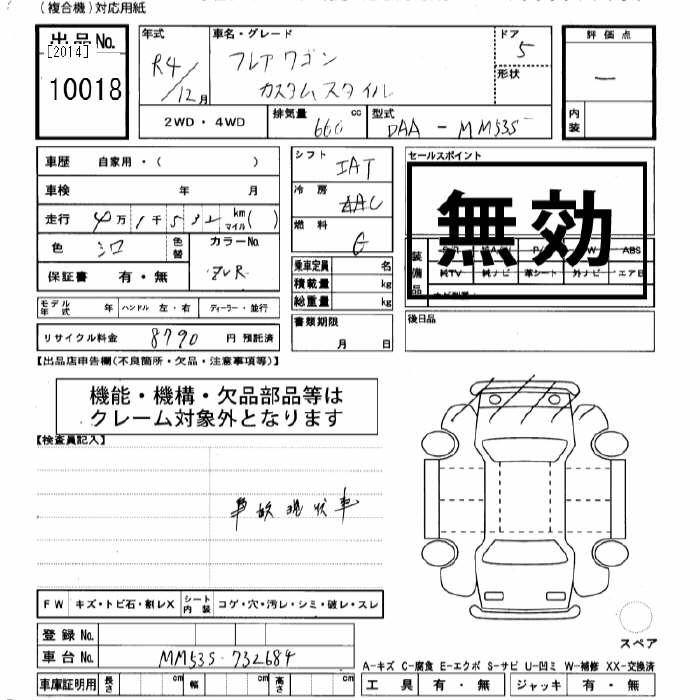 (複合機)対応用紙
出品No.
[2014]
10018
年式
R4/12月
車名・グレード
フレアワゴン
カスタムスタイル
ドア
5
形状
評価点
内装
2WD・4WD
排気量
660cc
型式
DAA-MM53S
車歴 自家用・( )
車検 年 月
走行 4万1千532km マイル( )
色 シロ 色替 カラーNo. ZVR
保証書 有・無
シフト
IAT
冷房
AAC
燃料
G
乗車定員 名
積載量 kg
総重量 kg
セールスポイント
無効
装備品
ABS
純TV 純ナビ 革シート 外ナビ エアB
モデル年式 年 ハンドル 左・右 ディーラー・並行
リサイクル料金 8790 円 預託済
書類期限
月 日
後日品
【出品店申告欄(不良箇所・欠品・注意事項等)】
機能・機構・欠品部品等は
クレーム対象外となります
【検査員記入】
事故現状車
FW キズ・トビ石・割レX シート内装 コゲ・穴・汚レ・シミ・破レ・スレ
スペア
登録No.
車台No. MM53S-732684
A-キズ C-腐食 E-エクボ S-サビ U-凹ミ W-補修 XX-交換済
車庫証明用 長さ cm 幅 cm 高さ cm
工具 有・無 ジャッキ 有・無